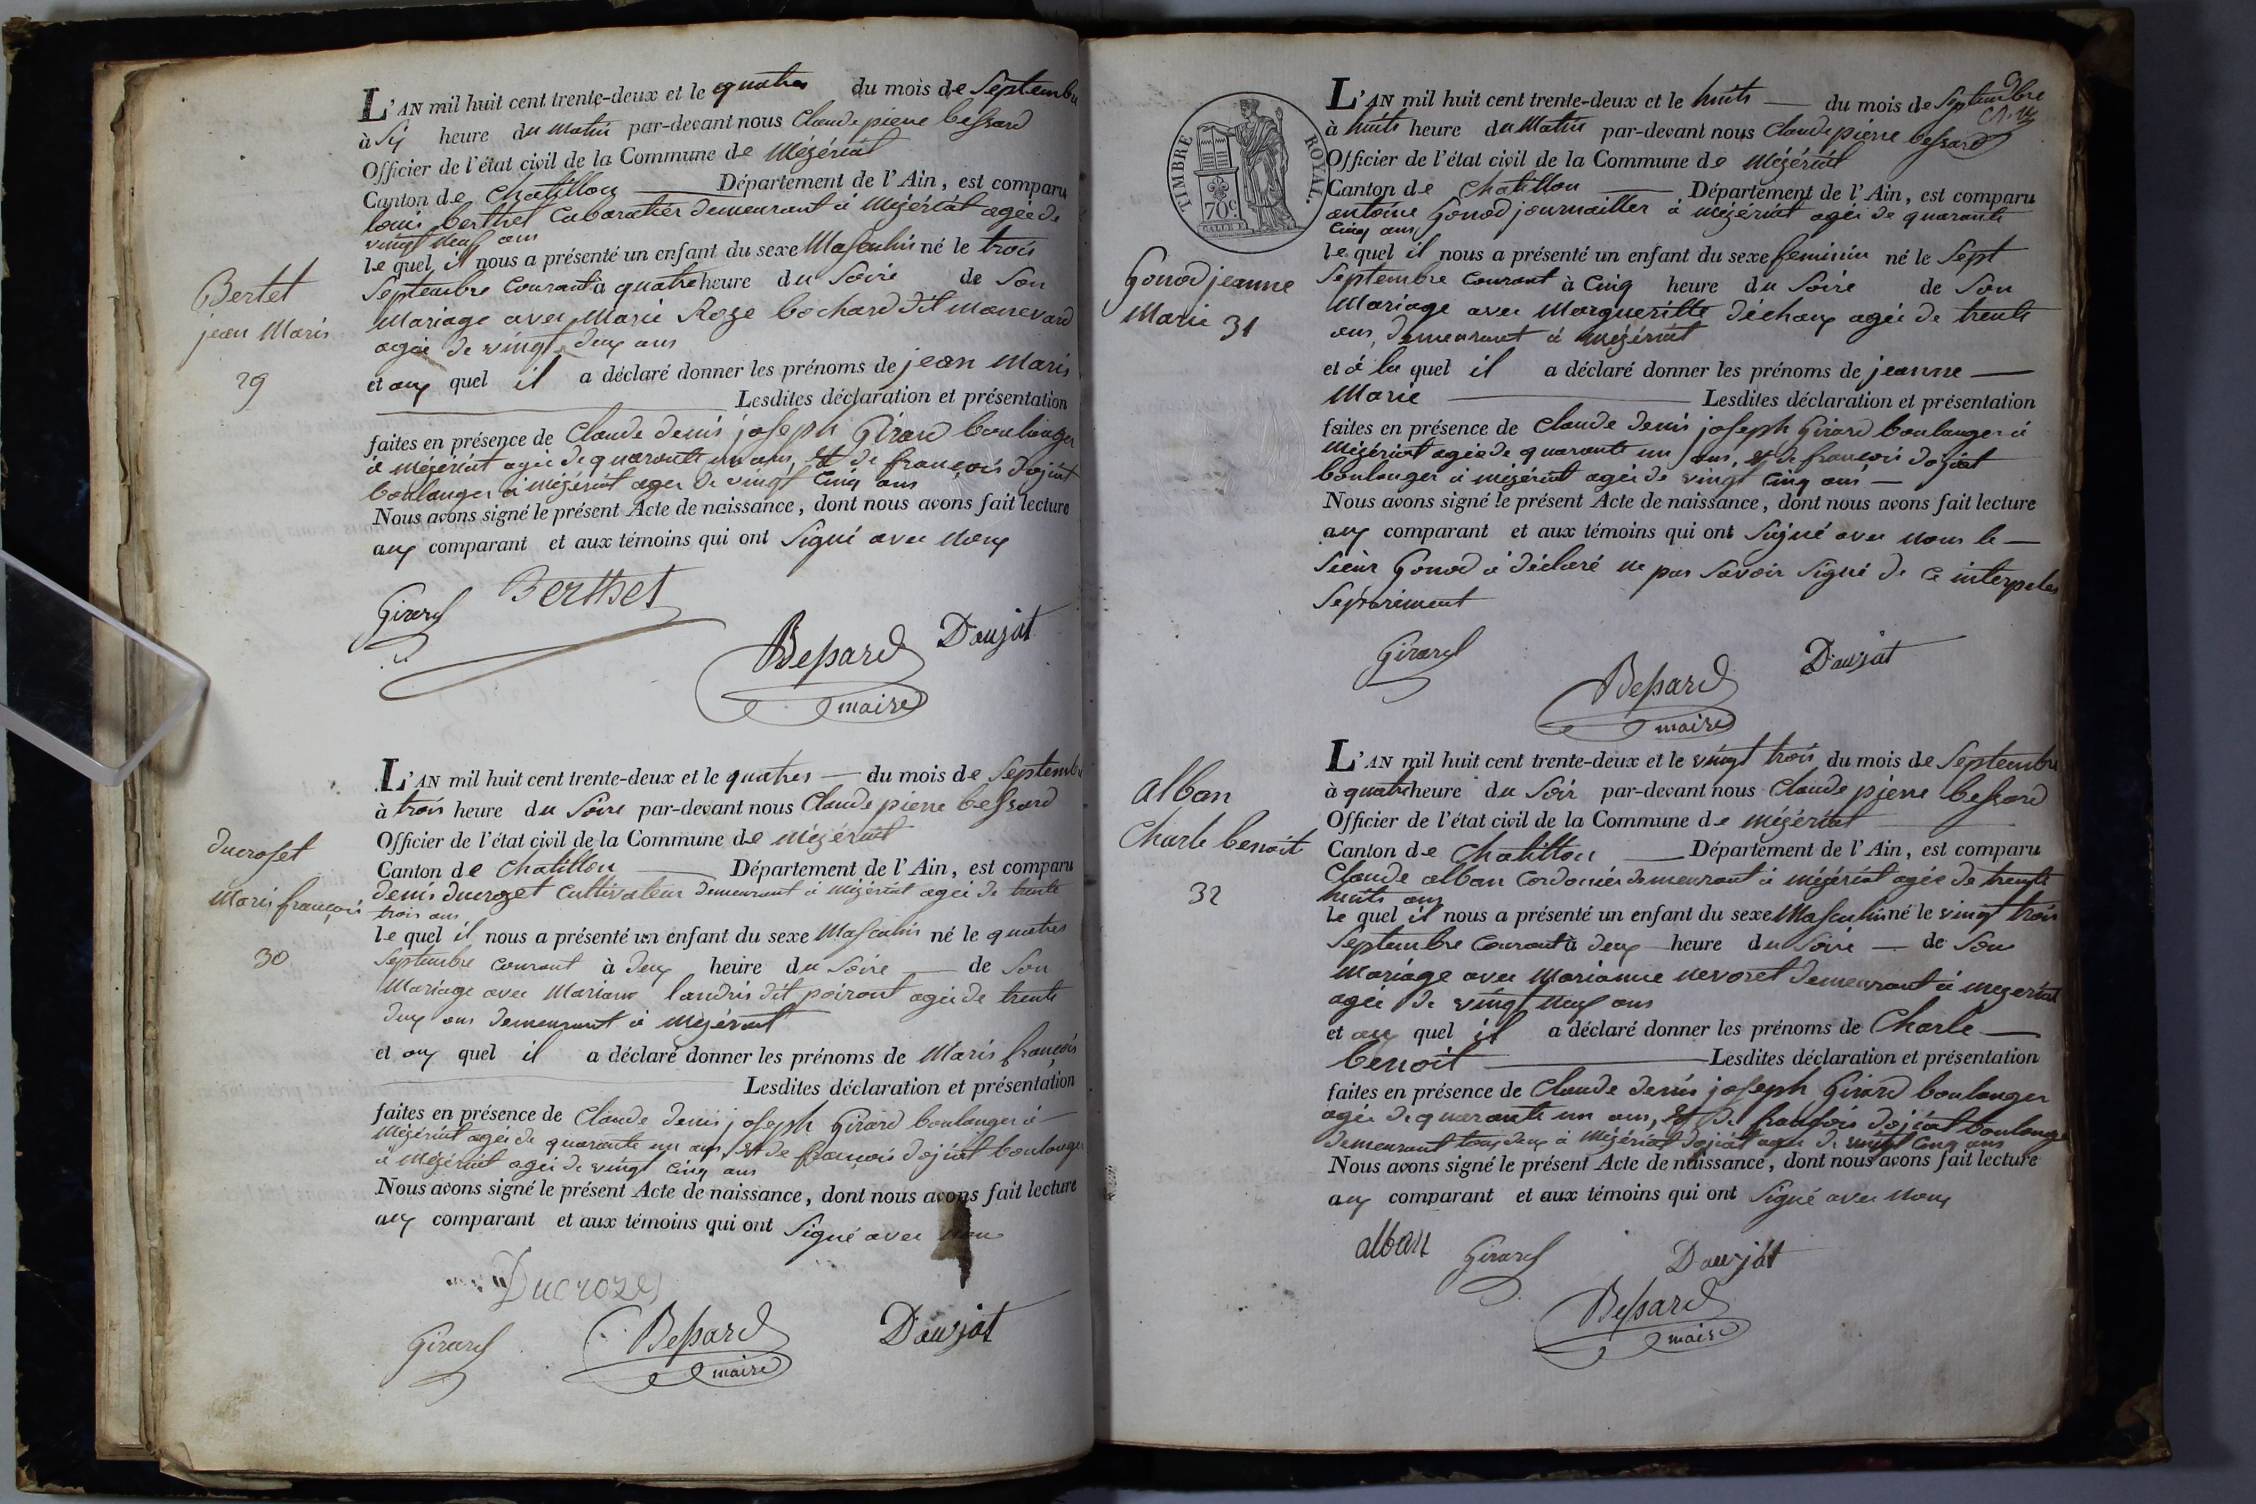 L'AN mil huit cent trente-deux et le quatres du mois de Septembre
à Six heure du Matin par-devant nous Claude pierre bessard
Officier de l'état civil de la Commune de Mézériat
Canton de Chatillon Département de l'Ain, est comparu
louis berthet Cabaratier demeurant à Mézériat agée de
vingt neuf ans
le quel il nous a présenté un enfant du sexe Masculin né le trois
Septembre Courant à quatre heure du Soire de Son
Mariage avec Marie Roze bochard dit manevard
agée de vingt deux ans
et aux quel il a déclaré donner les prénoms de jean Maris
Lesdites déclaration et présentation
faites en présence de Claude denis joseph Girard boulanger
à mézériat agée de quarante un ans, et de françois dojat
boulanger à mézériat agée de vingt Cinq ans
Nous avons signé le présent Acte de naissance, dont nous avons fait lecture
aux comparant et aux témoins qui ont Signé avec Nous
Berthet
Girard
Bessard
maire
Daujat
Bertet
jean Maris
29
L'AN mil huit cent trente-deux et le quatres du mois de Septembre
à trois heure du Soire par-devant nous Claude pierre bessard
Officier de l'état civil de la Commune de mézériat
Canton de Chatillon Département de l'Ain, est comparu
denis ducrozet Cultivateur demeurant à mézériat agée de trente
trois ans
le quel il nous a présenté un enfant du sexe Masculin né le quatres
Septembre courant à deux heure du Soire de Son
Mariage avec Mariane landris dit poiront agée de trente
deux ans demeurant à Mézériat
et aux quel il a déclaré donner les prénoms de Maris françois
Lesdites déclaration et présentation
faites en présence de Claude denis joseph Girard boulanger à
Mézériat agée de quarante un ans, et de françois dojat boulanger
à Mézériat agée de vingt cinq ans
Nous avons signé le présent Acte de naissance, dont nous avons fait lecture
aux comparant et aux témoins qui ont Signé avec nous
Ducrozet
Girard
Bessard
maire
Daujat
ducroset
Maris françois
30
TIMBRE ROYAL.
70c.
L'AN mil huit cent trente-deux et le huits du mois de Septembre
à huits heure du Matin par-devant nous Claude pierre bessard
Officier de l'état civil de la Commune de Mézériat
Canton de Chatillon Département de l'Ain, est comparu
antoine Gonod journailler à mézériat agée de quarante
Cinq ans
le quel il nous a présenté un enfant du sexe feminin né le Sept
Septembre Courant à Cinq heure du Soire de Son
Mariage avec Margueritte déchaux agée de trente
ans, demeurant à Mézériat
et à la quel il a déclaré donner les prénoms de jeanne
Marie Lesdites déclaration et présentation
faites en présence de Claude denis joseph Girard boulanger à
Mézériat agée de quarante un ans, et de francois dojat
boulanger à mézériat agée de vingt Cinq ans
Nous avons signé le présent Acte de naissance, dont nous avons fait lecture
aux comparant et aux témoins qui ont Signé avec nous le
Sieur Gonod à déclaré ne pas Savoir Signé de Ce interpeles
Séparement
Girard
Bessard
maire
Daujat
Gonod jeanne
Marie 31
L'AN mil huit cent trente-deux et le vingt trois du mois de Septembre
à quatre heure du Soir par-devant nous Claude pierre bessard
Officier de l'état civil de la Commune de mézériat
Canton de Chatillon Département de l'Ain, est comparu
Claude alban Cordonier demeurant à mézériat agée de trente
huits ans
le quel il nous a présenté un enfant du sexe Masculin né le vingt trois
Septembre Courant à deux heure du Soire de Son
Mariage avec Marianne nevoret demeurant à mezeriat
agée de vingt neuf ans
et au quel il a déclaré donner les prénoms de Charle
benoit Lesdites déclaration et présentation
faites en présence de Claude denis joseph Girard boulanger
agée de quarante un ans, et de françois dojat boulanger
demeurant tous deux à Mézériat dojat agée de vingt Cinq ans
Nous avons signé le présent Acte de naissance, dont nous avons fait lecture
aux comparant et aux témoins qui ont Signé avec Nous
alban
Girard
Daujat
Bessard
maire
alban
Charle benoit
32